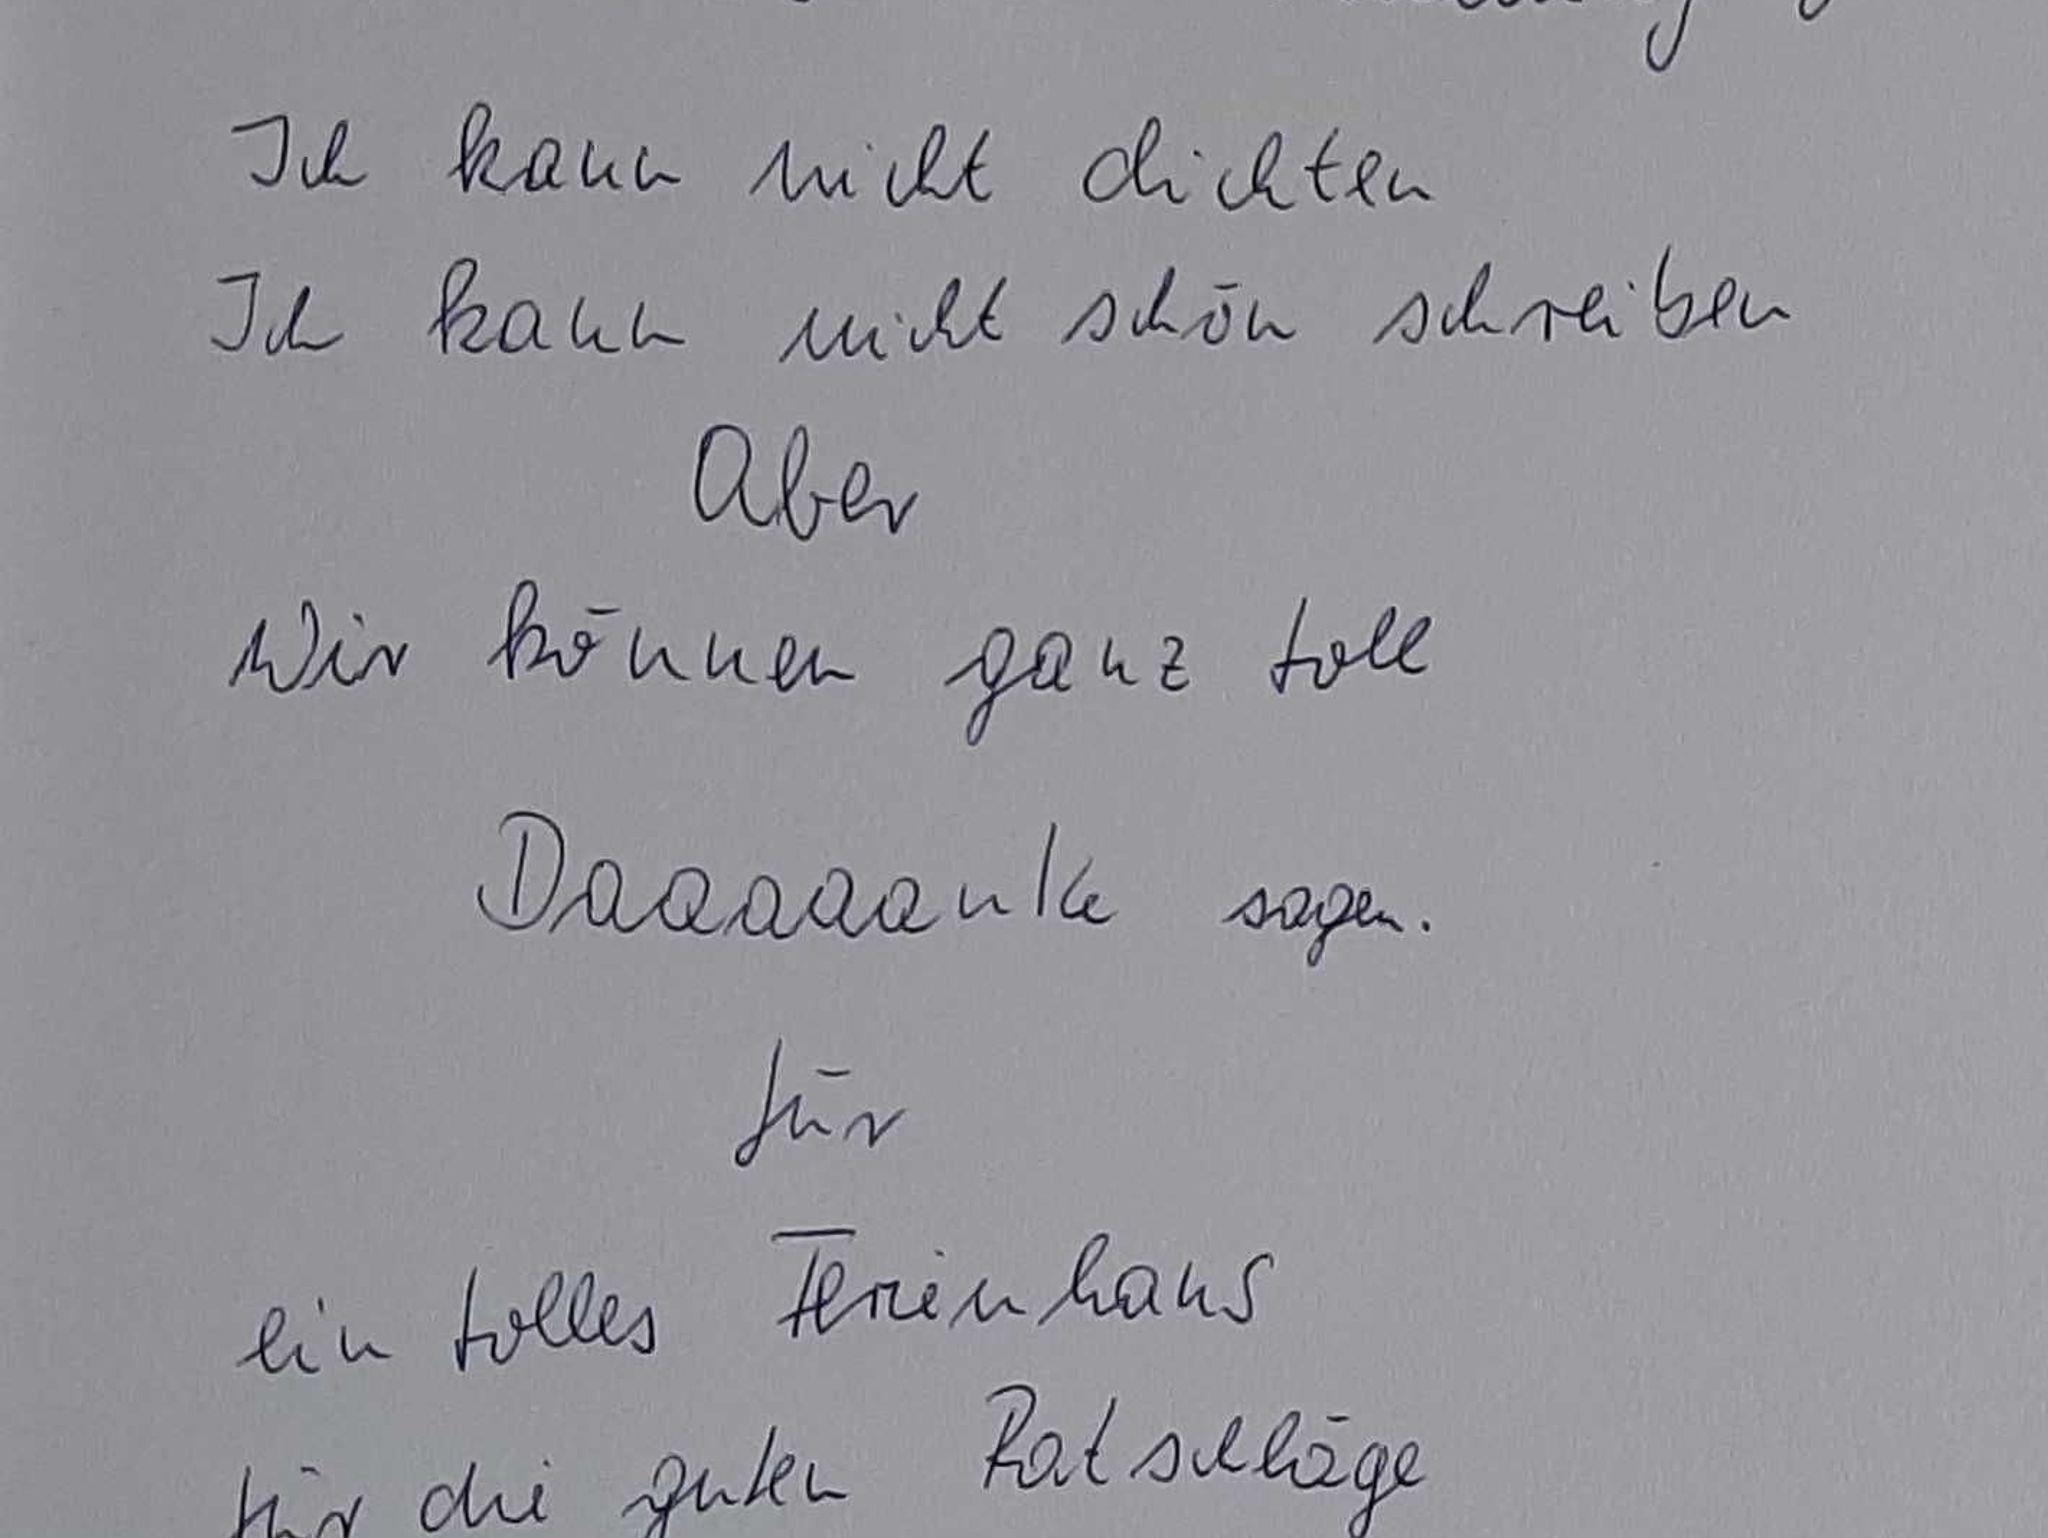 Ich kann nicht dichten
Ich kann nicht schön schreiben
Aber
Wir können ganz toll
Daaaaanke sagen.
für
ein tolles Ferienhaus
für die guten Ratschläge